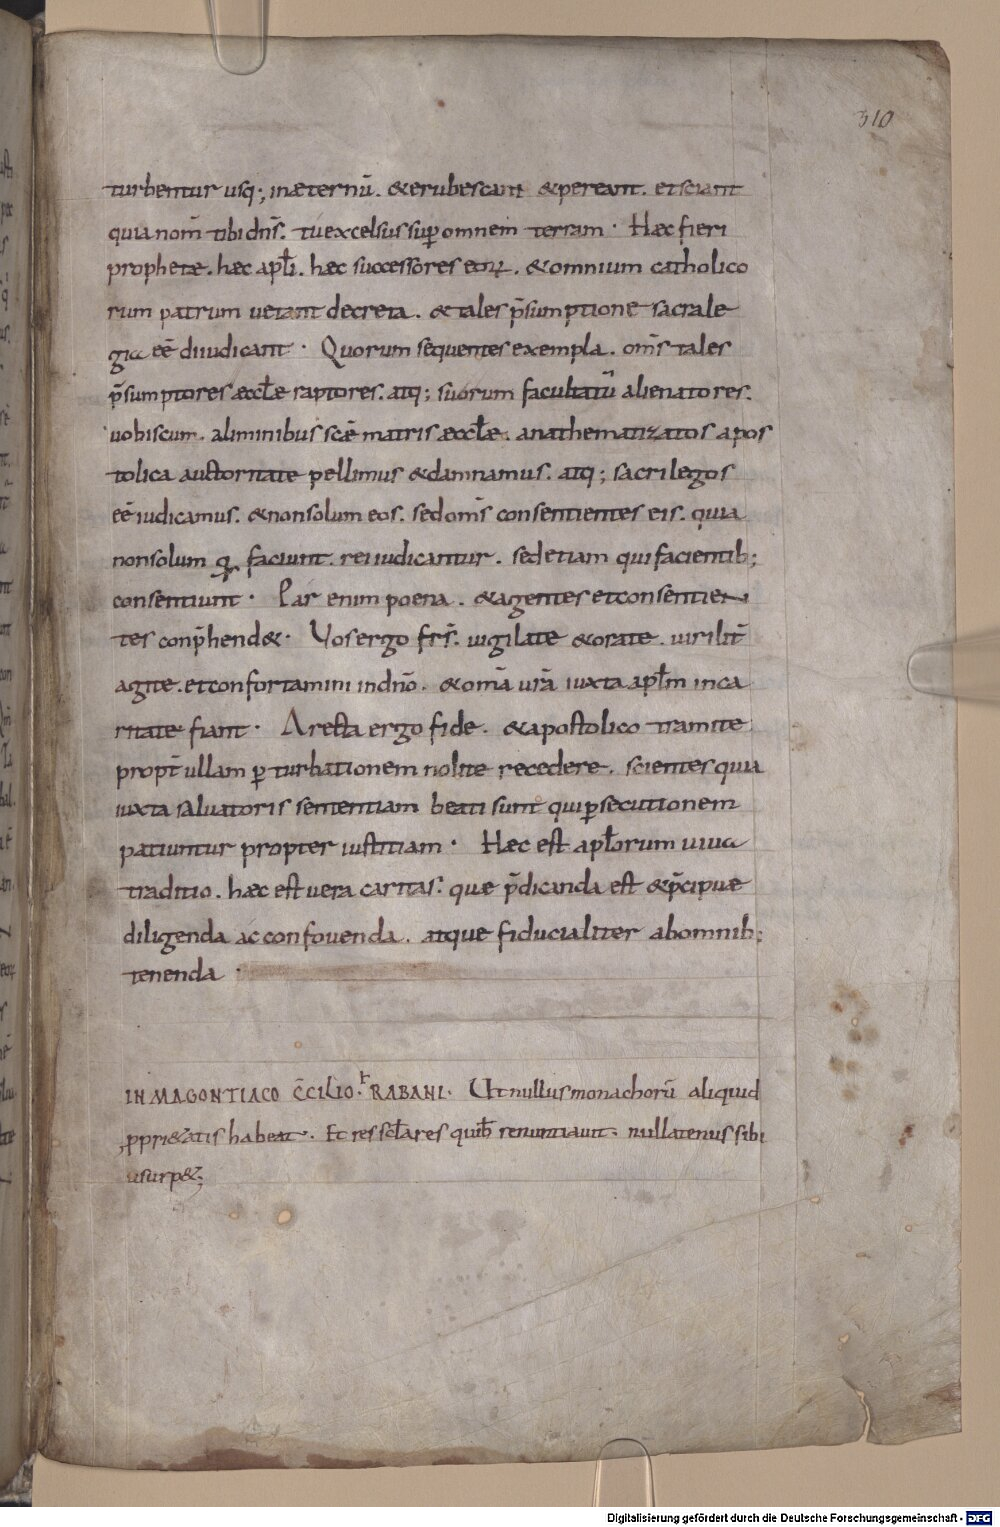 310
turbentur usq; inæternū. &erubescant &pereant. etsciant
quia nom̄ tibi dn̄s. tu excelsus sup̄ omnem terram · Hæc fieri
prophetæ. hæc apłi. hæc successores eoꝝ. &omnium catholico
rum patrum uetant decreta. & tales p̄sumptione sacrale
gia eē diiudicant · Quorum sequentes exempla. om̄s tales
p̄sumptores æccłæ raptores. atq; suorum facultatū alienatores.
uobiscum. aliminibus scǣ matris æccłæ. anathematizatos apos
tolica auctoritate pellimus &damnamus. atq; sacrilegos
eē iudicamus. &nonsolum eos. sed om̄s consentientes eis. quia
nonsolum q̄ faciunt. rei iudicantur. sedetiam qui facientib;
consentiunt · Par enim poena. &agentes etconsentien
tes conp̄hend&· Vos ergo fr̄s. uigilate &orate. uirilit̄
agite. etconfortamini in dn̄o. &om̄a ur̄a iuxta apłm inca
ritate fiant · A recta ergo fide. &apostolico tramite
propt̄ ullam ꝑturbationem nolite recedere. scientes quia
iuxta saluatoris sententiam beati sunt qui ꝑsecutionem
patiuntur propter iustitiam · Hæc est apłorum uiua
traditio. hæc est uera caritas. quæ p̄dicanda est &p̄cipuæ
diligenda ac confouenda. atque fiducialiter abomnib;
tenenda ·
IN MAGONTIACO C̄CILIO. RABANI. Ut nullus monachorū aliquid
ꝓpri&atis habeat. Et res scłares quib; renuntiauit. nullatenus sibi
usurp&;
Digitalisierung gefördert durch die Deutsche Forschungsgemeinschaft - DFG